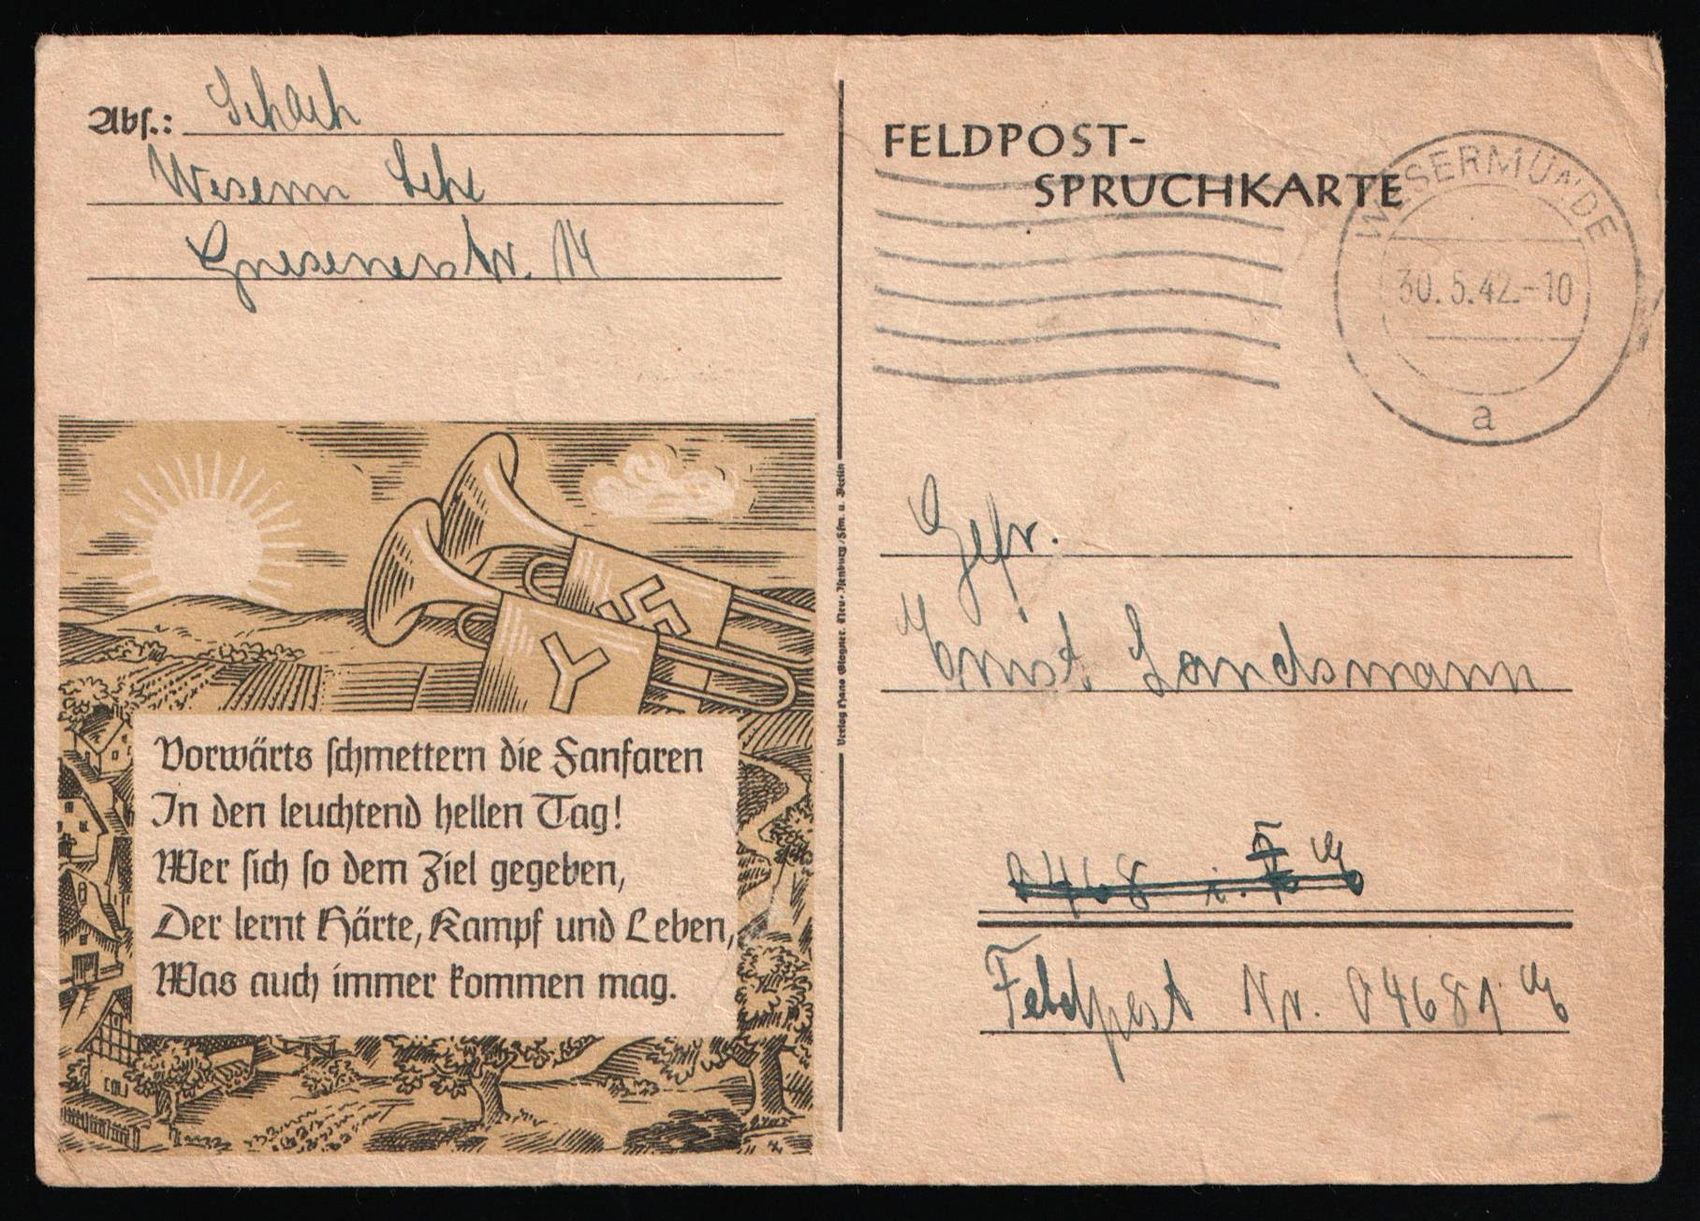 Abs.: Schach
Weserm Lehe
Gnesenerstr. 14
FELDPOST-
SPRUCHKARTE
WESERMÜNDE
30.5.42.-10
a
Vorwärts schmettern die Fanfaren
In den leuchtend hellen Tag!
Wer sich so dem Ziel gegeben,
Der lernt Härte, Kampf und Leben,
Was auch immer kommen mag.
Verlag Hans Glogner, Neu-Isenburg/Ffm. u. Berlin
Gefr.
Ernst Landsmann
Feldpost Nr. 04681